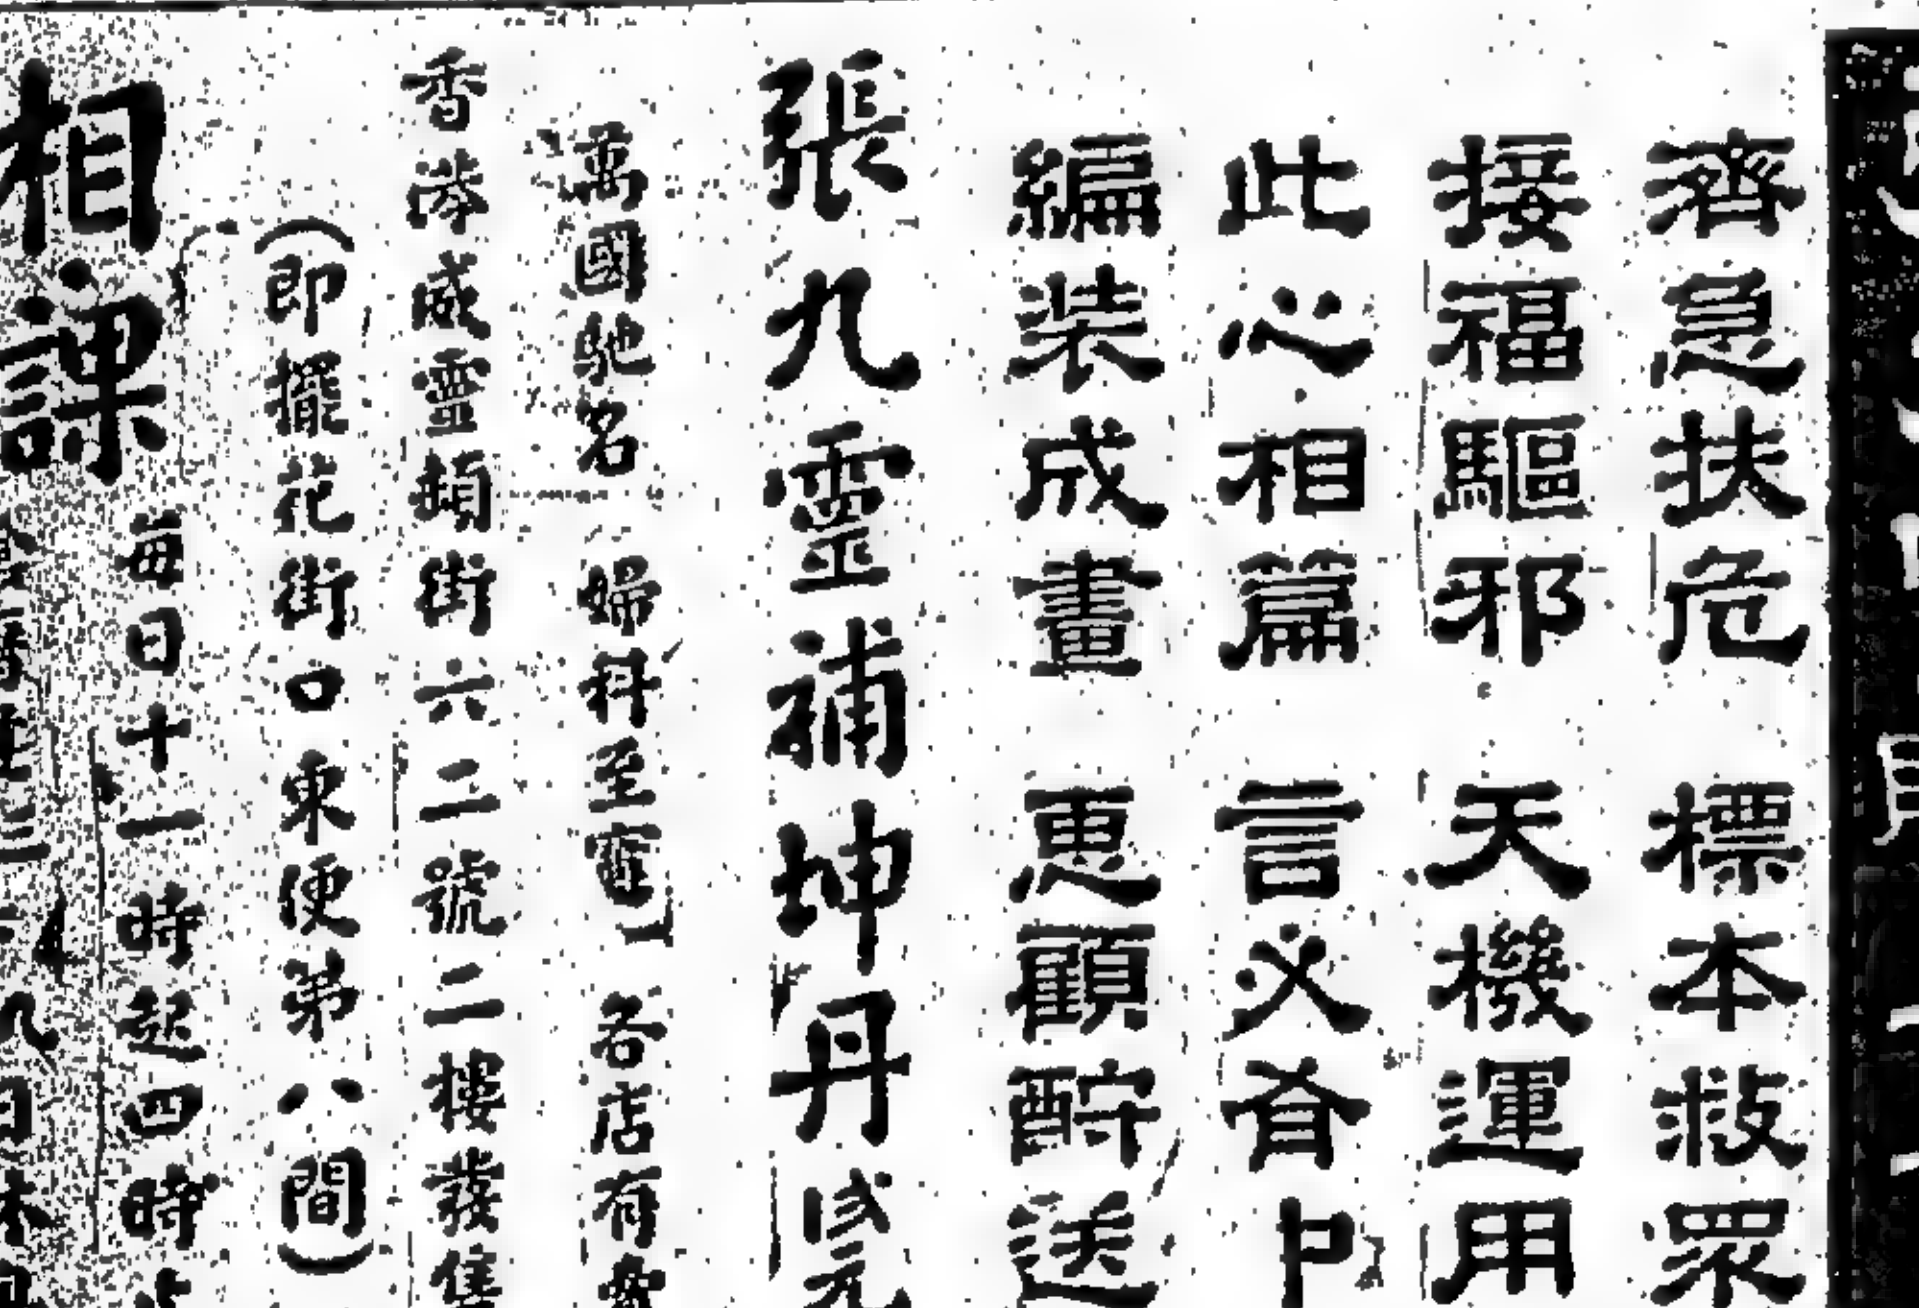 濟急扶危 標本救眾
接福驅邪 天機運用
此心相篇 言必有中
編裝成畫 惠顧酧送
張九靈補坤丹
萬國馳名 婦科至寶 各店有
香港威靈頓街六二號二樓發售
(即擺花街口東便第八間)
相課 每日十一時起四時